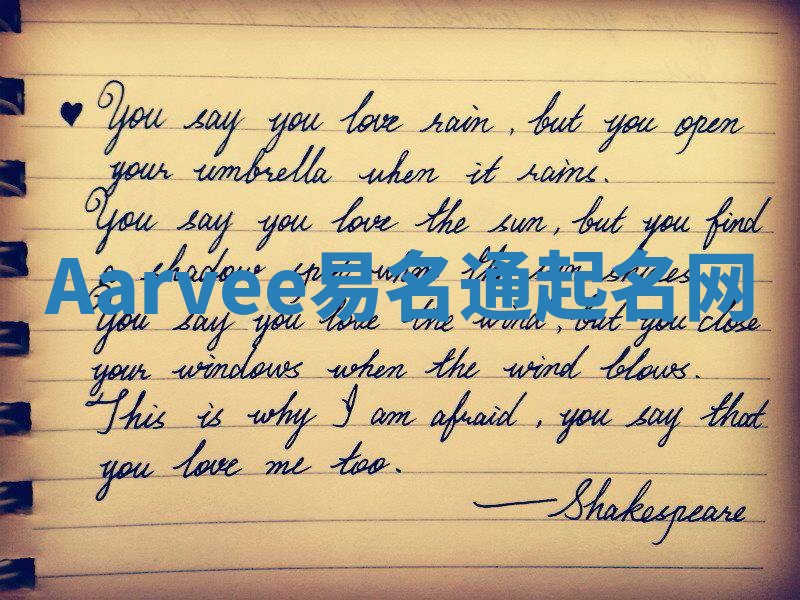 ♥ You say you love rain, but you open
your umbrella when it rains.
You say you love the sun, but you find
a shadow spot when the sun shines.
Aarvee易名通起名网
You say you love the wind, but you close
your windows when the wind blows.
This is why I am afraid, you say that
you love me too.
— Shakespeare